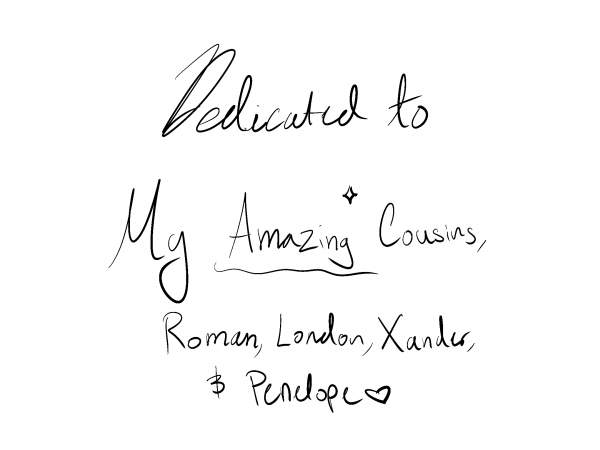 Dedicated to
My Amazing Cousins,
Roman, London, Xander,
& Penelope♡